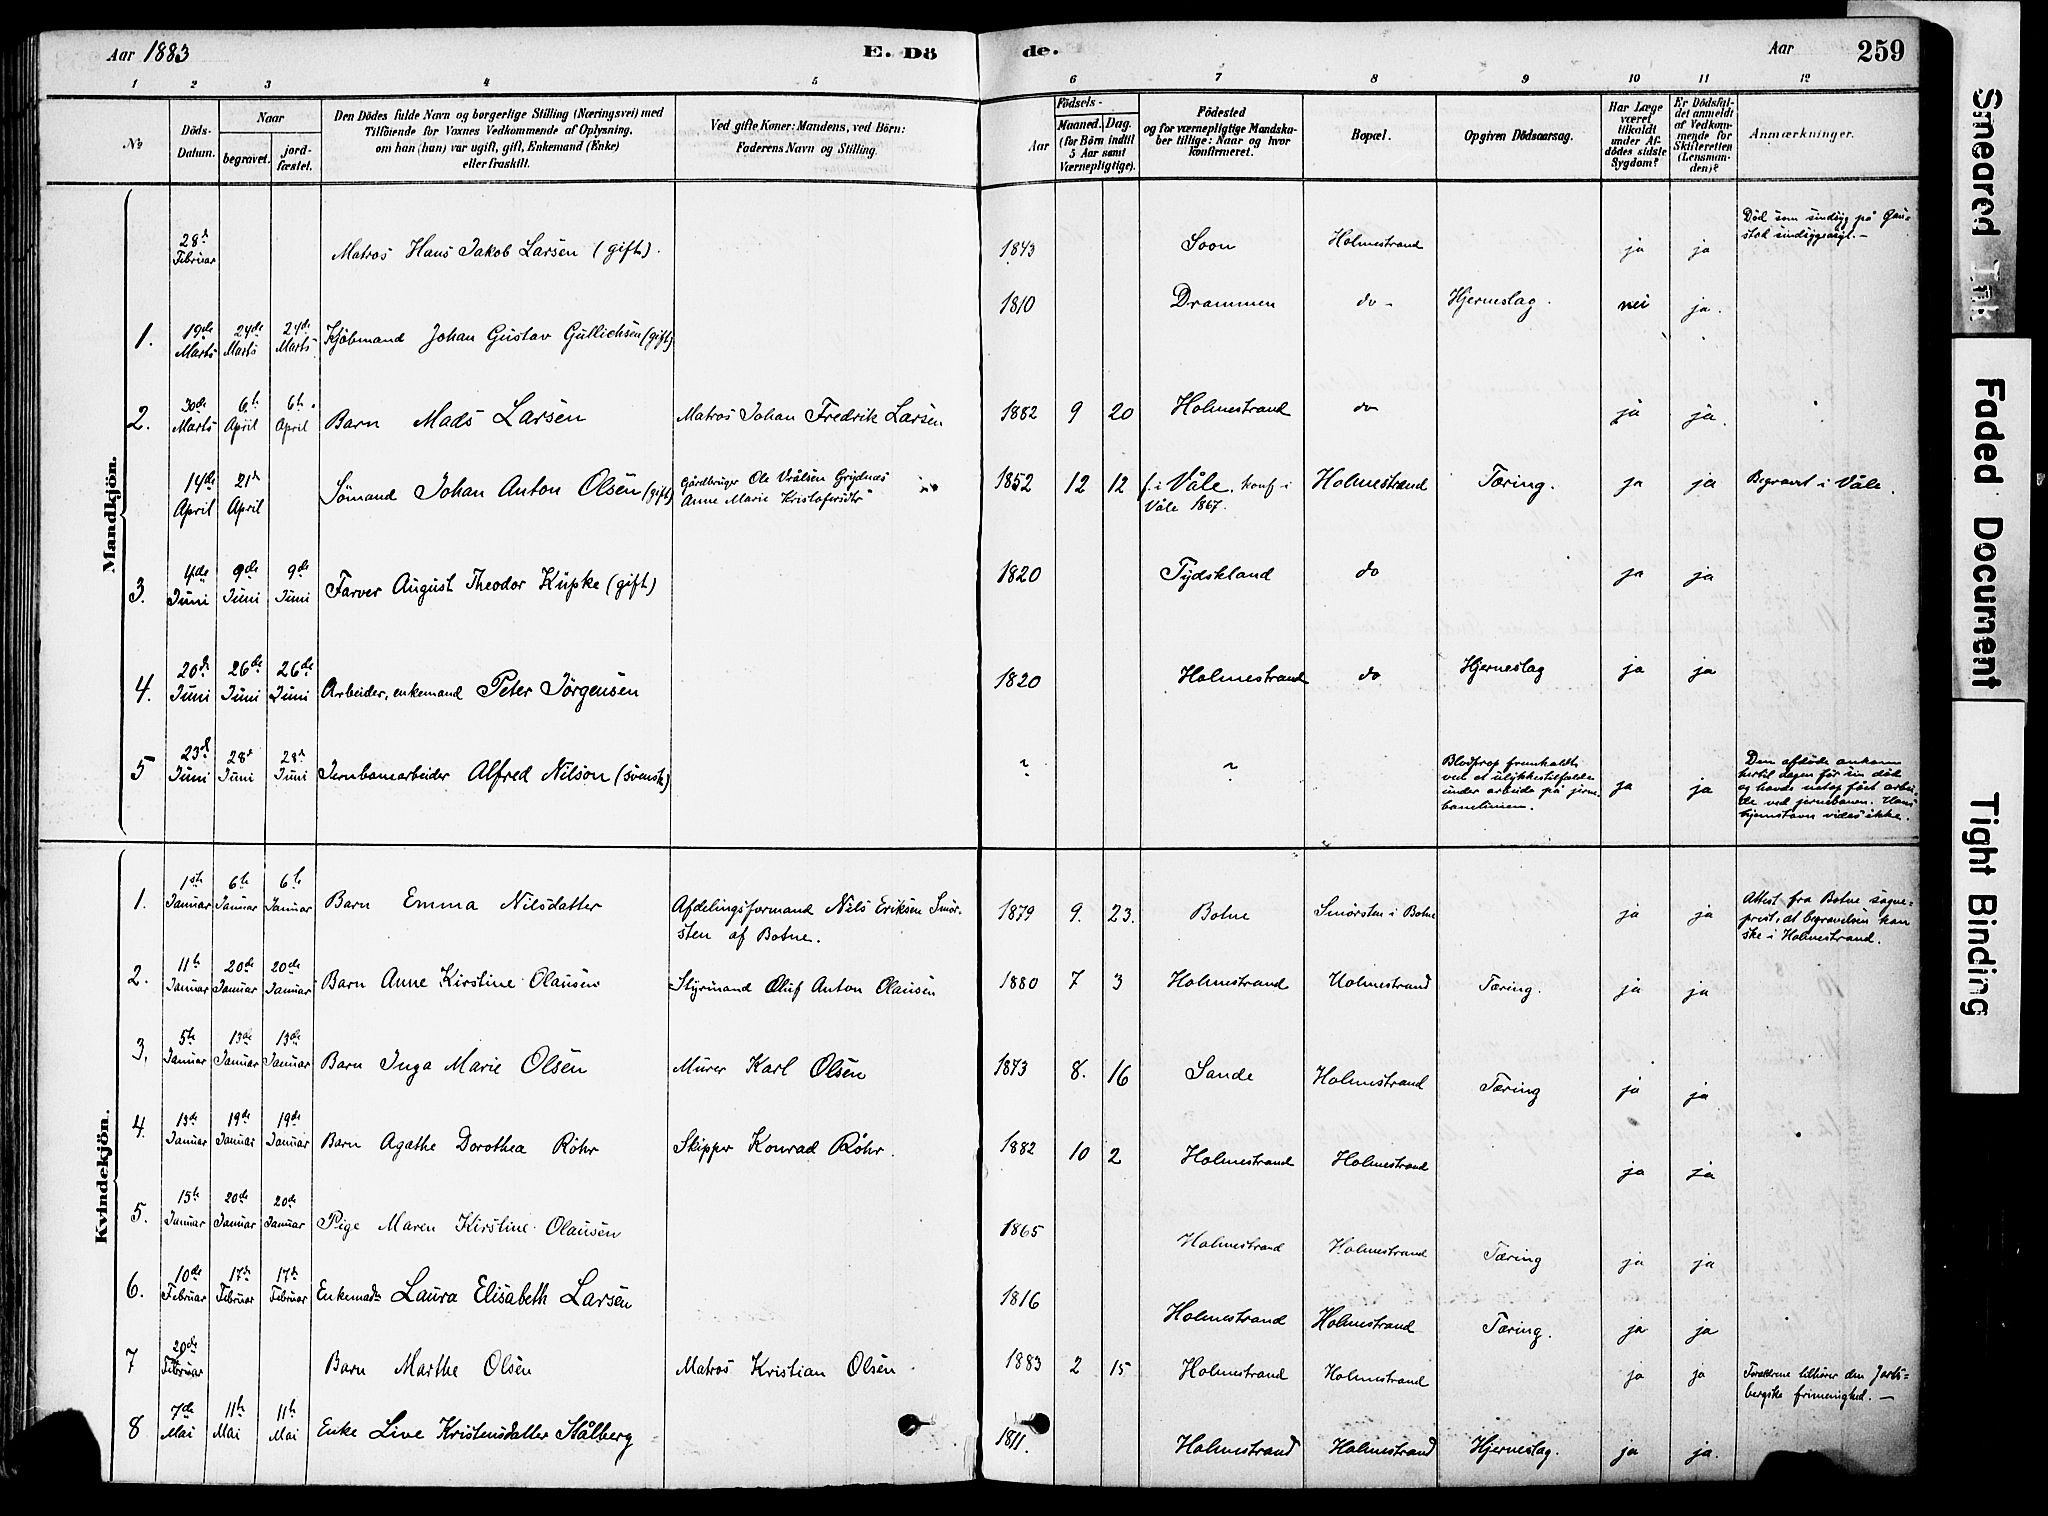 Aar 1883 E. Dö
de. Aar 259
1 2 3 4 5 6 7 8 9 10 11 12
No
Döds-Datum.
Naar
begravet.
jordfæstet.
Den Dödes fulde Navn og borgerlige Stilling (Næringsvei) med
Tilföiende for Voxnes Vedkommende af Oplysning,
om han (hun) var ugift, gift, Enkemand (Enke)
eller fraskilt.
Ved gifte Koner: Mandens, ved Börn:
Faderens Navn og Stilling.
Födsels-
Aar
Maaned. Dag.
(for Börn indtil
5 Aar samt
Værnepligtige).
Födested
og for værnepligtige Mandskaber tillige: Naar og hvor
konfirmeret.
Bopæl.
Opgiven Dödsaarsag.
Har Læge været tilkaldt under Afdödes sidste Sygdom?
Er Dödsfaldet anmeldt af Vedkommende for Skifteretten (Lensmanden)?
Anmærkninger.
Mandkjön.
28d Februar Matros Hans Jakob Larsen (gift). 1843 Soon Holmestrand ja ja Død som sindsyg på Gaustad sindsygeasyl.-
1. 19de Marts 24de Marts 24de Marts Kjöbmand Johan Gustav Gullichsen (gift) 1810 Drammen do - Hjerneslag. nei ja.
2. 30de Marts 6th April 6th April Barn Mads Larsen Matros Johan Fredrik Larsen 1882 9 20 Holmestrand do ja ja.
14de April 21d April Sømand Johan Anton Olsen (gift) Gårdbruger Ole Vrålsen Grydnæs
Anne Marie Kristofersdtr 1852 12 12 f. i Våle. konf i
Våle 1867. Holmestrand Tæring. ja ja Begravet i Våle.
3. 4de Juni 9de Juni 9de Juni Farver August Theodor Küpke (gift) 1820 Tydskland do ja ja
4. 20d Juni 26de Juni 26de Juni Arbeider, enkemand Peter Jørgensen 1820 Holmestrand do Hjerneslag ja ja
5 23d Juni 28d Juni 28d Juni Jernbanearbeider Alfred Nilson (svensk) ? ? Blodstrop fremkaldt
ved et ulykkestilfælde
under arbeide på jernbanelinien. ja ja Den afdøde ankom
hertil dagen før sin død
og havde netop fået arbeide ved jernbanen. Hans
hjemstavn vides ikke.
Kvindekjön.
1. 1ste Januar 6th Januar 6th Januar Barn Emma Nilsdatter Afdelingsformand Nils Eriksen Smørsten af Botne. 1879 9. 23. Botne Smørsten i Botne ja ja Attest fra Botne sogneprest, at begravelsen kan
ske i Holmestrand.
2. 11th Januar 20de Januar 20de Januar Barn Anne Kirstine Olausen Styrmand Oluf Anton Olausen 1880 7 3 Holmestrand Holmestrand Tæring. ja ja
3. 5th Januar 13de Januar 13de Januar Barn Inga Marie Olsen Murer Karl Olsen 1873 8. 16 Sande Holmestrand Tæring ja ja
4. 13de Januar 19de Januar 19de Januar Barn Agathe Dorothea Røhr Skipper Konrad Røhr. 1882 10 2 Holmestrand Holmestrand ja ja
5. 15th Januar 20de Januar 20de Januar Pige Maren Kirstine Olausen 1865 Holmestrand Holmestrand Tæring ja ja
6. 10de Februar 17d Februar 17d Februar Enkemad. Laura Elisabeth Larsen 1816 Holmestrand Holmestrand Tæring. ja ja
7 20de Februar Barn Marthe Olsen Matros Kristian Olsen 1883 2 15 Holmestrand Holmestrand ja ja Forældrene tilhører den Jarlsbergske frimenighed.-
8 7de Mai 11th Mai 11th Mai Enke Live Kristensdatter Stålberg 1811. Holmestrand Holmestrand Hjerneslag. ja ja.
Smeared Ink
Faded Document
Tight Binding